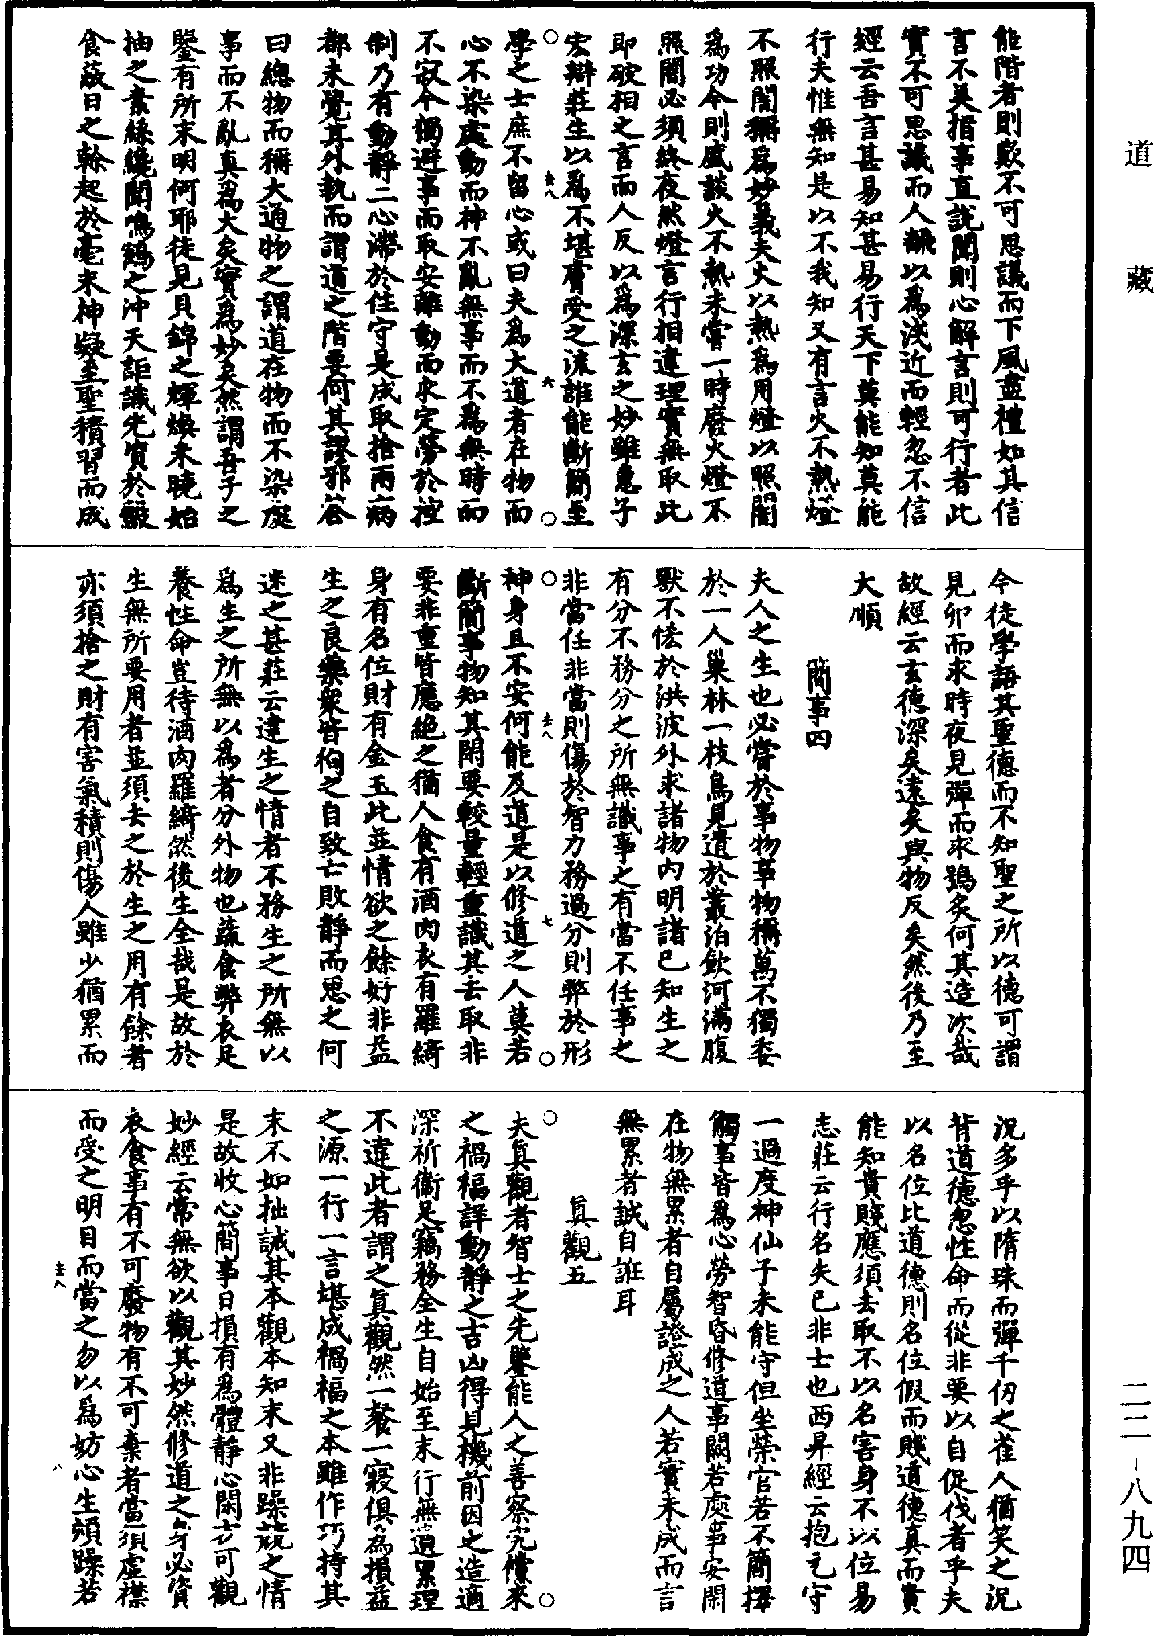 道藏
二二－八九四
能階者則歎不可思議而下風盡禮如其信
言不美指事直說聞則心解言則可行者此
實不可思議而人翻以為淺近而輕忽不信
經云吾言甚易知甚易行天下莫能知莫能
行夫惟無知是以不我知又有言火不熱燈
不照闇稱為妙義夫火以熱為用燈以照闇
為功今則盛談火不熱未嘗一時廢火燈不
照闇必須終夜然燈言行相違理實無取此
即破相之言而人反以為深玄之妙雖惠子
宏辯莊生以為不堪膚受之流誰能斷簡至
去八
六
學之士庶不留心或曰夫為大道者在物而
心不染處動而神不亂無事而不為無時而
不寂今獨避事而取安離動而求定勞於控
制乃有動靜二心滯於住守是成取捨兩病
都未覺其外執而謂道之階要何其謬邪答
曰總物而稱大通物之謂道在物而不染處
事而不亂真為大矣實為妙矣然謂吾子之
鑒有所未明何耶徒見貝錦之輝煥未曉始
抽之素絲纔聞鳴鶴之沖天詎識先資於鷇
食蔽日之榦起於毫末神凝至聖積習而成
今徒學語其聖德而不知聖之所以德可謂
見卵而求時夜見彈而求鴞炙何其造次哉
故經云玄德深矣遠矣與物反矣然後乃至
大順
簡事四
夫人之生也必嘗於事物事物稱萬不獨委
於一人巢林一枝鳥見遺於叢泊飲河滿腹
獸不悋於洪波外求諸物內明諸己知生之
有分不務分之所無識事之有當不任事之
非當任非當則傷於智力務過分則弊於形
去八
七
神身且不安何能及道是以修道之人莫若
斷簡事物知其閑要較量輕重識其去取非
要非重皆應絕之猶人食有酒肉衣有羅綺
身有名位財有金玉此並情欲之餘好非益
生之良藥眾皆徇之自致亡敗靜而思之何
迷之甚莊云達生之情者不務生之所無以
為生之所無以為者分外物也蔬食弊衣足
養性命豈待酒肉羅綺然後生全哉是故於
生無所要用者並須去之於生之用有餘者
亦須捨之財有害氣積則傷人雖少猶累而
況多乎以隋珠而彈千仞之雀人猶笑之況
背道德忽性命而從非要以自促伐者乎夫
以名位比道德則名位假而賤道德真而貴
能知貴賤應須去取不以名害身不以位易
志莊云行名失已非士也西昇經云抱元守
一過度神仙子未能守但坐榮官若不簡擇
觸事皆為心勞智昏修道事闕若處事安閑
在物無累者自屬證成之人若實未成而言
無累者誠自誑耳
真觀五
夫真觀者智士之先鑒能人之善察究儻來
之禍福詳動靜之吉凶得見機前因之造適
深祈衛足竊務全生自始至末行無遺累理
不違此者謂之真觀然一餐一寢俱為損益
之源一行一言堪成禍福之本雖作巧持其
末不如拙誡其本觀本知末又非躁競之情
是故收心簡事日損有為體靜心閑方可觀
妙經云常無欲以觀其妙然修道之身必資
衣食事有不可廢物有不可棄者當須虛襟
而受之明目而當之勿以為妨心生煩躁若
去八
八